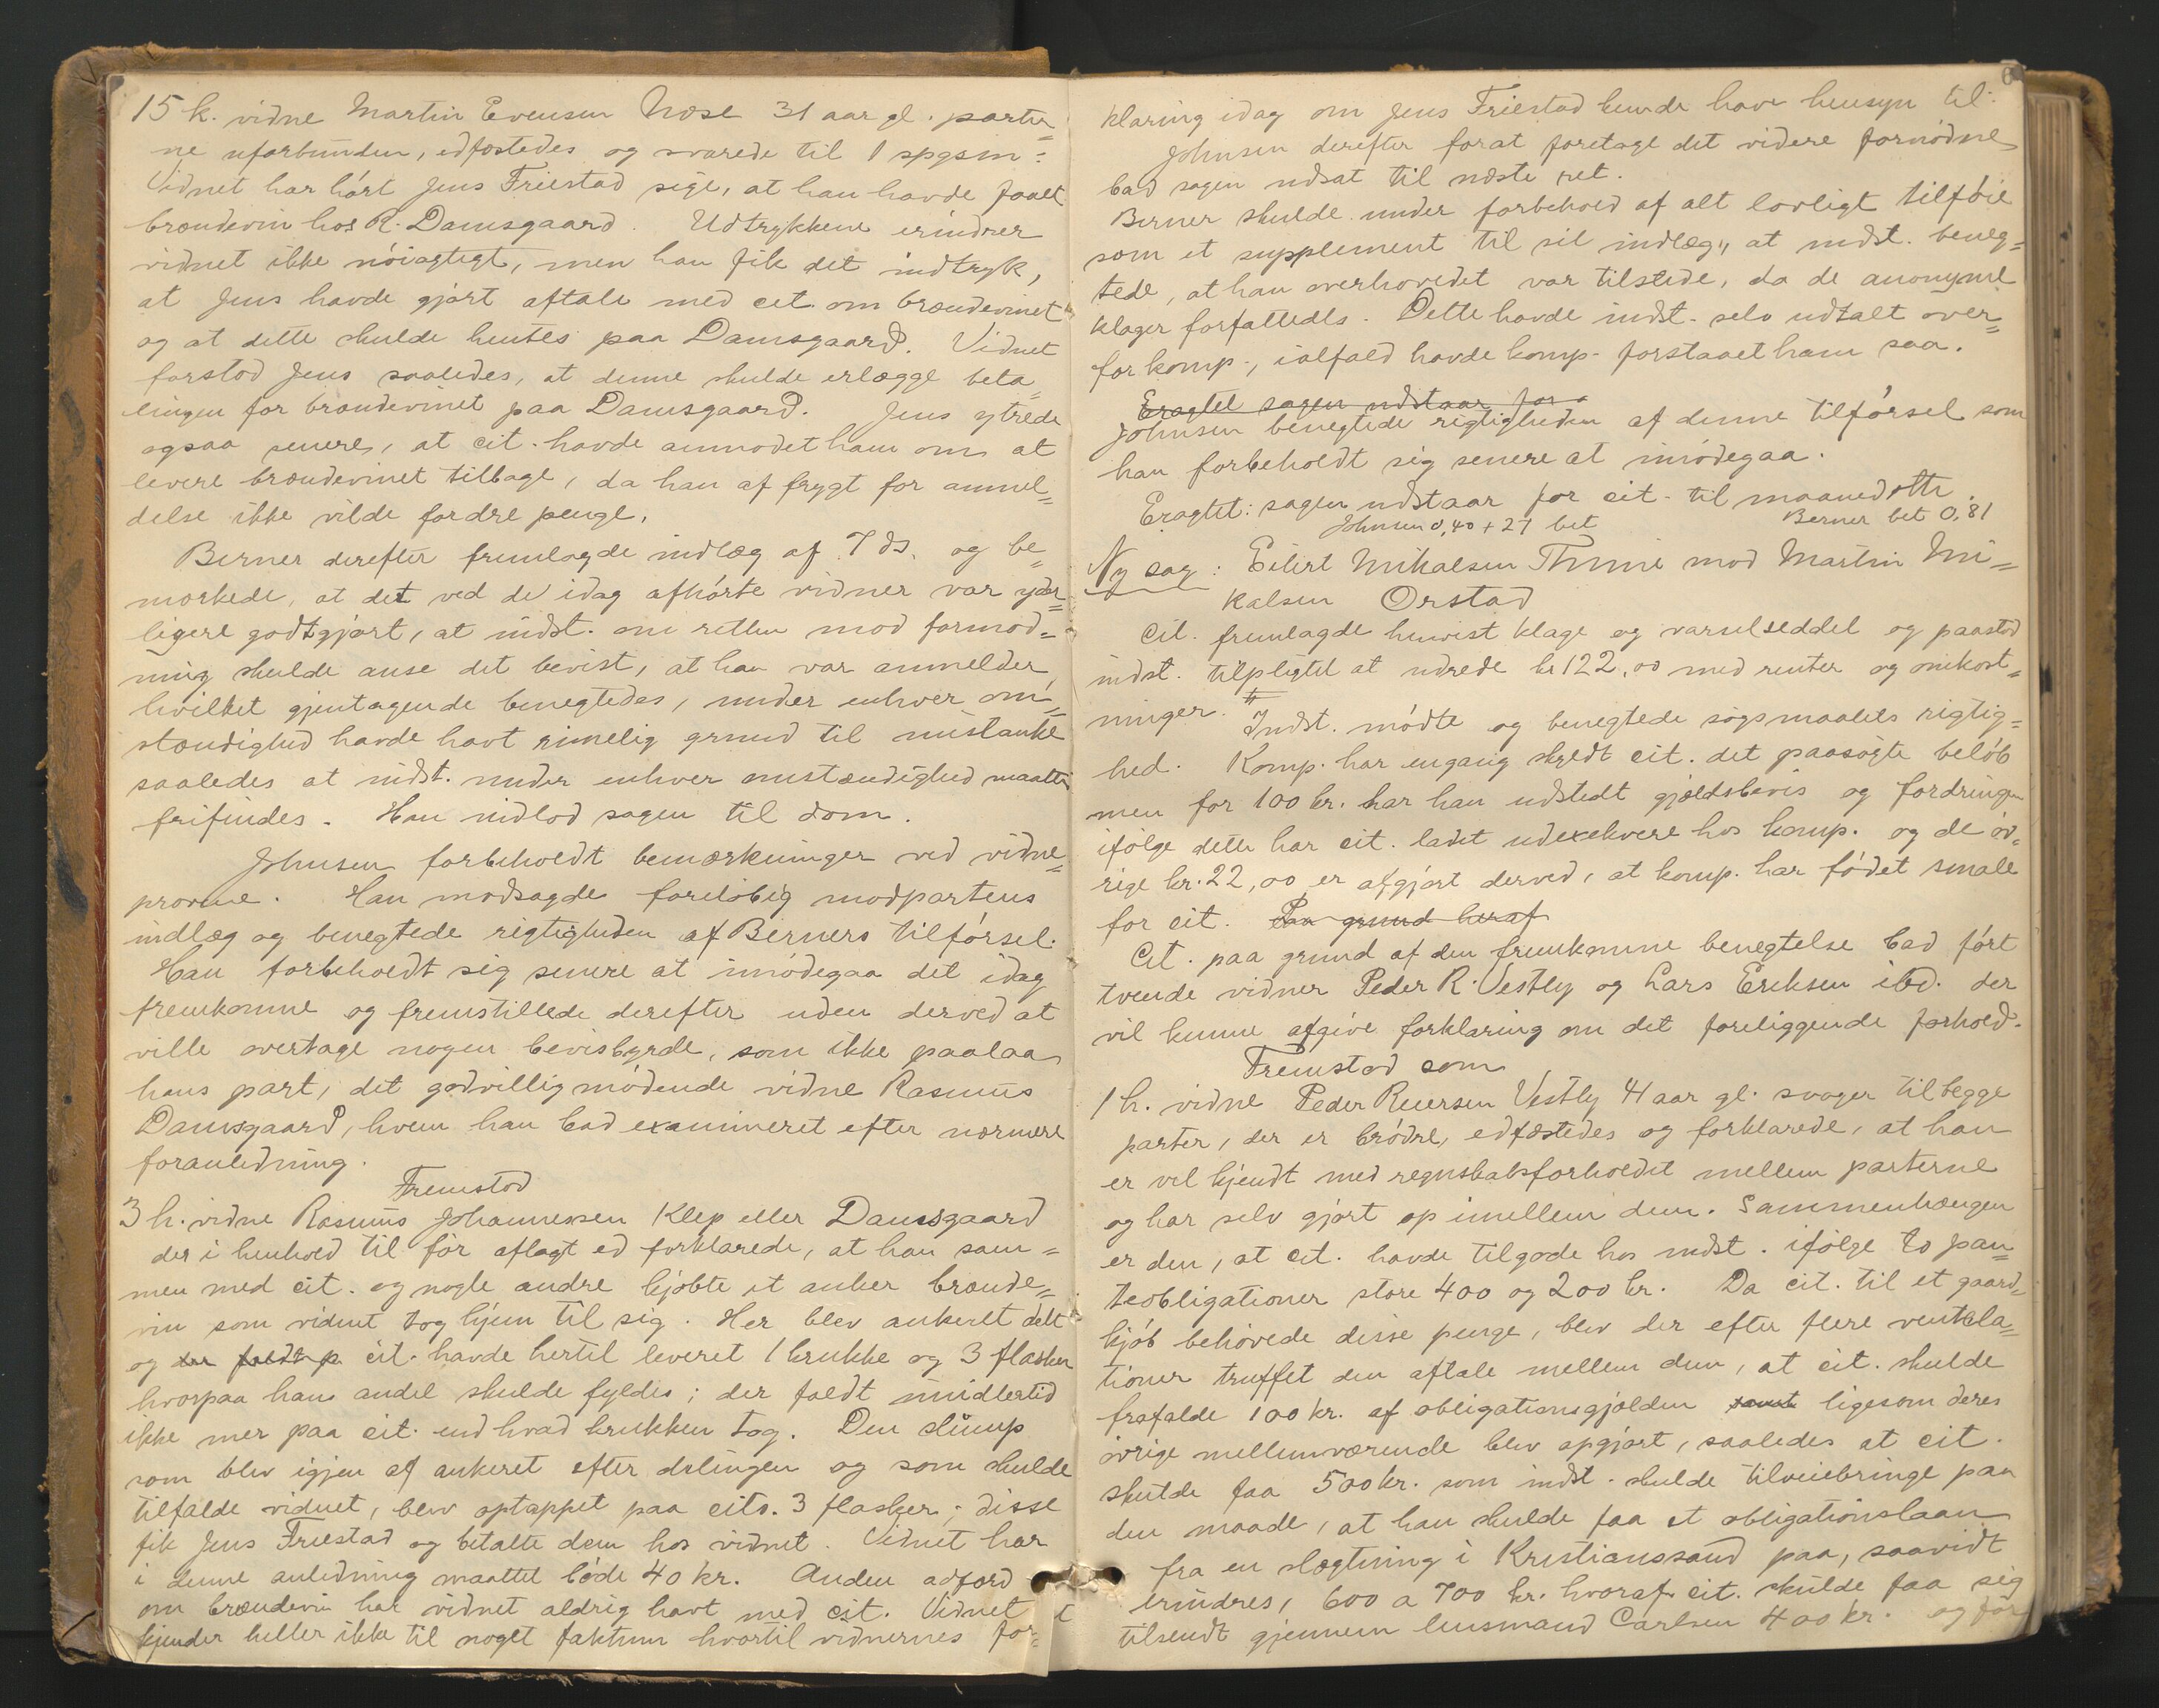 15 k. vidne Martin Evensen Næse 31 aar gl. parter=
ne uforbunden, edfæstedes og svarede til 1 spgsm:
Vidnet har hørt Jens Friestad sige, at han havde faaet
brændevin hos R. Damsgaard. Udtrykkene erindrer
vidnet ikke nøiagtigt, men han fik det indtryk,
at Jens havde gjort aftale med cit. om brændevinet
og at dette skulde hentes paa Damsgaard. Vidnet
forstod Jens saaledes, at denne skulde erlægge beta=
lingen for brændevinet paa Damsgaard. Jens ytrede
ogsaa senere, at cit. havde anmodet ham om at
levere brændevinet tilbage, da han af frygt for anmel=
delse ikke vilde fordre penge.
Berner derefter fremlagde indlæg af 7 ds. og be=
mærkede, at det ved de idag afhørte vidner var yder=
ligere godtgjort, at indst. om retten mod formod=
ning skulde anse det bevist, at han var anmelder,
hvilket gjentagende benegtedes, under enhver om=
stændighed havde havt rimelig grund til mistanke
saaledes at indst. under enhver omstændighed maatte
frifindes. Han indlod sagen til dom.
Johnsen forbeholdt bemærkninger ved vidne=
provene. Han modsagde foreløbig modpartens
indlæg og benegtede rigtigheden af Berners tilførsel.
Han forbeholdt sig senere at imødegaa det idag
fremkomne og fremstillede derefter uden derved at
ville overtage nogen bevisbyrde, som ikke paalaa
hans part, det godvillig mødende vidne Rasmus
Damsgaard, hvem han bad examineret efter nærmere
foranledning.
Fremstod
3 h. vidne Rasmus Johannessen Klep eller Damsgaard
der i henhold til før aflagt ed forklarede, at han sam=
men med cit. og nogle andre kjøbte et anker brænde=
vin som vidnet tog hjem til sig. Her blev ankeret delt
og der faldt p cit. havde hertil leveret 1 krukke og 3 flasker
hvorpaa hans andel skulde fyldes; der faldt imidlertid
ikke mer paa cit. end hvad krukken tog. Den slump
som blev igjen af ankeret efter delingen og som skulde
tilfalde vidnet, blev optappet paa cits. 3 flasker; disse
fik Jens Friestad og betalte dem hos vidnet. Vidnet har
i denne anledning maattet bøde 40 kr. Anden adfærd
om brændevin har vidnet aldrig havt med cit. Vidnet
kjender heller ikke til noget faktum hvortil vidnernes for=
6
klaring idag om Jens Friestad kunde have hensyn til.
Johnsen derefter forat foretage det videre fornødne
bad sagen udsat til næste ret.
Berner skulde under forbehold af alt lovligt tilføie
som et supplement til sit indlæg, at indst. beneg=
tede, at han overhovedet var tilstede, da de anonyme
klager forfattedes. Dette havde indst. selv udtalt over=
for komp., ialfald havde komp. forstaaet ham saa.
Eragtet sagen udstaar for
Johnsen benegtede rigtigheden af denne tilførsel som
han forbeholdt sig senere at imødegaa.
Eragtet: sagen udstaar for cit. til maanedsette.
Johnsen 0,40 + 27 bet Berner bet 0,81
Ny sag: Eilert Mikalsen Thime mod Martin Mi=
kalsen Orstad
Cit. fremlagde henvist klage og varselseddel og paastod
indst. tilpligtet at udrede kr 122,00 med renter og omkost=
ninger. Indst. mødte og benegtede søgsmaalets rigtig=
hed. Komp. har engang skyldt cit. det paasøgte beløb
men for 100 kr. har han udstedt gjældsbevis og fordringen
ifølge dette har cit. ladet udexekvere hos komp. og de øv=
rige kr. 22,00 er afgjort derved, at komp. har fødet smale
for cit. Paa grund heraf
Cit. paa grund af den fremkomne benegtelse bad ført
tvende vidner Peder R. Vestly og Lars Eriksen ibd. der
vil kunne afgive forklaring om det foreliggende forhold.
Fremstod som
1 h. vidne Peder Reiersen Vestly 41 aar gl. svoger til begge
parter, der er brødre, edfæstedes og forklarede, at han
er vel kjendt med regnskabsforholdet mellem parterne
og har selv gjort op imellem dem. Sammenhængen
er den, at cit. havde tilgode hos indst. ifølge to pan=
teobligationer store 400 og 200 kr. Da cit. til et gaard=
kjøb behøvede disse penge, blev der efter flere ventela=
tioner truffet den aftale mellem dem, at cit. skulde
frafalde 100 kr. af obligationsgjælden samt ligesom deres
øvrige mellemværende blev opgjort, saaledes at cit.
skulde faa 500 kr. som indst. skulde tilveiebringe paa
den maade, at han skulde faa et obligationslaan
fra en slægtning i Kristianssand paa, saavidt
erindres, 600 a 700 kr. hvoraf cit. skulde faa sig
tilsendt gjennem lensmand Carlsen 400 kr. og for